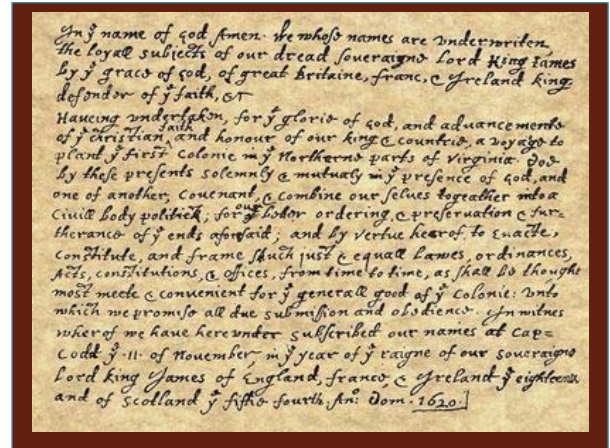 In yͤ name of God Amen· We whose names are vnderwriten,
the loyall subjects of our dread soveraigne Lord King James
by yͤ grace of God, of great Britaine, franc, & Ireland king,
defender of yͤ faith, &c
Haveing vndertaken, for yͤ glorie of God, and advancemente
of yͤ christian faith and honour of our king & countrie, a voyage to
plant yͤ first colonie in yͤ Northerne parts of Virginia· doe
by these presents solemnly & mutualy in yͤ presence of God, and
one of another, covenant, & combine our selves togeather into a
civill body politick; for our better ordering, & preservation & fur=
therance of yͤ ends aforesaid; and by vertue hearof to enacte,
constitute, and frame shuch just & equall lawes, ordinances,
Acts, constitutions, & offices, from time to time, as shall be thought
most meete & convenient for yͤ generall good of yͤ Colonie: vnto
which we promise all due submission and obedience. In witnes
wherof we have herevnder subscribed our names at Cap=
Codd yͤ ·11· of November, in yͤ year of yͤ raigne of our soveraigne
Lord king James of England, france, & Ireland yͤ eighteenth
and of Scotland yͤ fiftie fourth. Anͦ: Dom. 1620·]